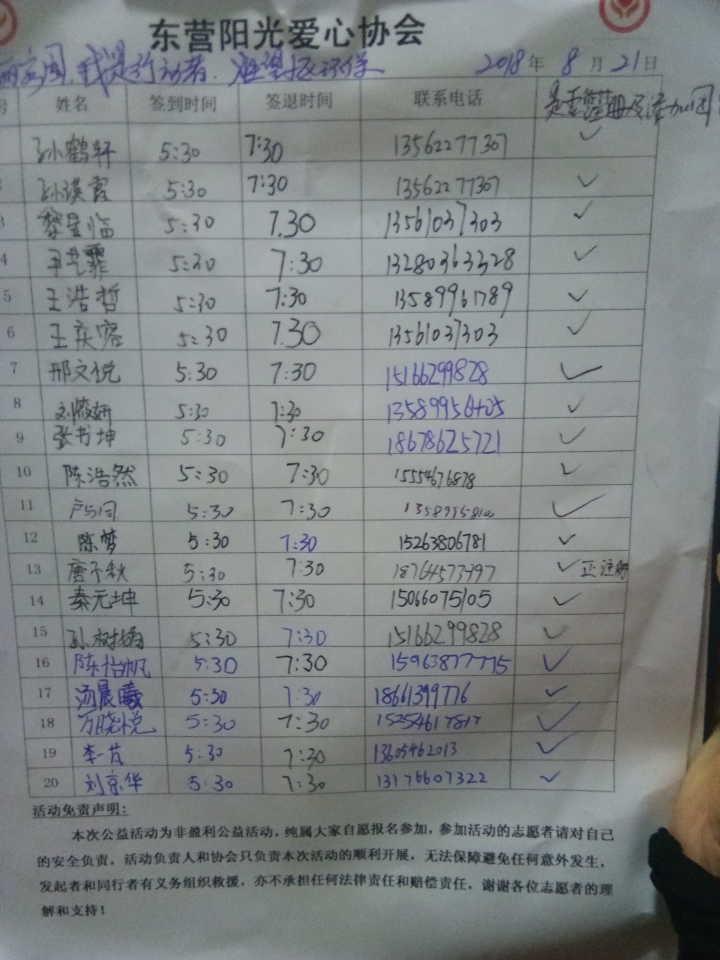 东营阳光爱心协会
我是行动者
2018年8月21日
号 姓名 签到时间 签退时间 联系电话
孙鹤轩 5:30 7:30 13562277307 ✓
5:30 7:30 13562277307 ✓
3 黎星临 5:30 7.30 13561037303 ✓
4 5:30 7:30 13280363328 ✓
5 王浩哲 5:30 7:30 13589961789 ✓
6 王奕容 5:30 7.30 13561037303 ✓
7 邢文悦 5:30 7:30 15166299828 ✓
8 5:30 7:30 13589956405 ✓
9 张书坤 5:30 7:30 18678625721 ✓
10 陈浩然 5:30 7:30 15554676878 ✓
11 5:30 7:30 ✓
12 陈梦 5:30 7:30 15263806781 ✓
13 5:30 7:30 18764577497 ✓
14 秦元坤 5:30 7:30 15066075105 ✓
15 5:30 7:30 15166299828 ✓
16 陈怡帆 5:30 7:30 15963877775 ✓
17 汤晨曦 5:30 7:30 18661399776 ✓
18 万晓悦 5:30 7:30 15254617817 ✓
19 5:30 7:30 13605462013 ✓
20 刘京华 5:30 7:30 13176607322 ✓
活动免责声明:
本次公益活动为非盈利公益活动，纯属大家自愿报名参加，参加活动的志愿者请对自己
的安全负责。活动负责人和协会只负责本次活动的顺利开展，无法保障避免任何意外发生，
发起者和同行者有义务组织救援，亦不承担任何法律责任和赔偿责任，谢谢各位志愿者的理
解和支持！